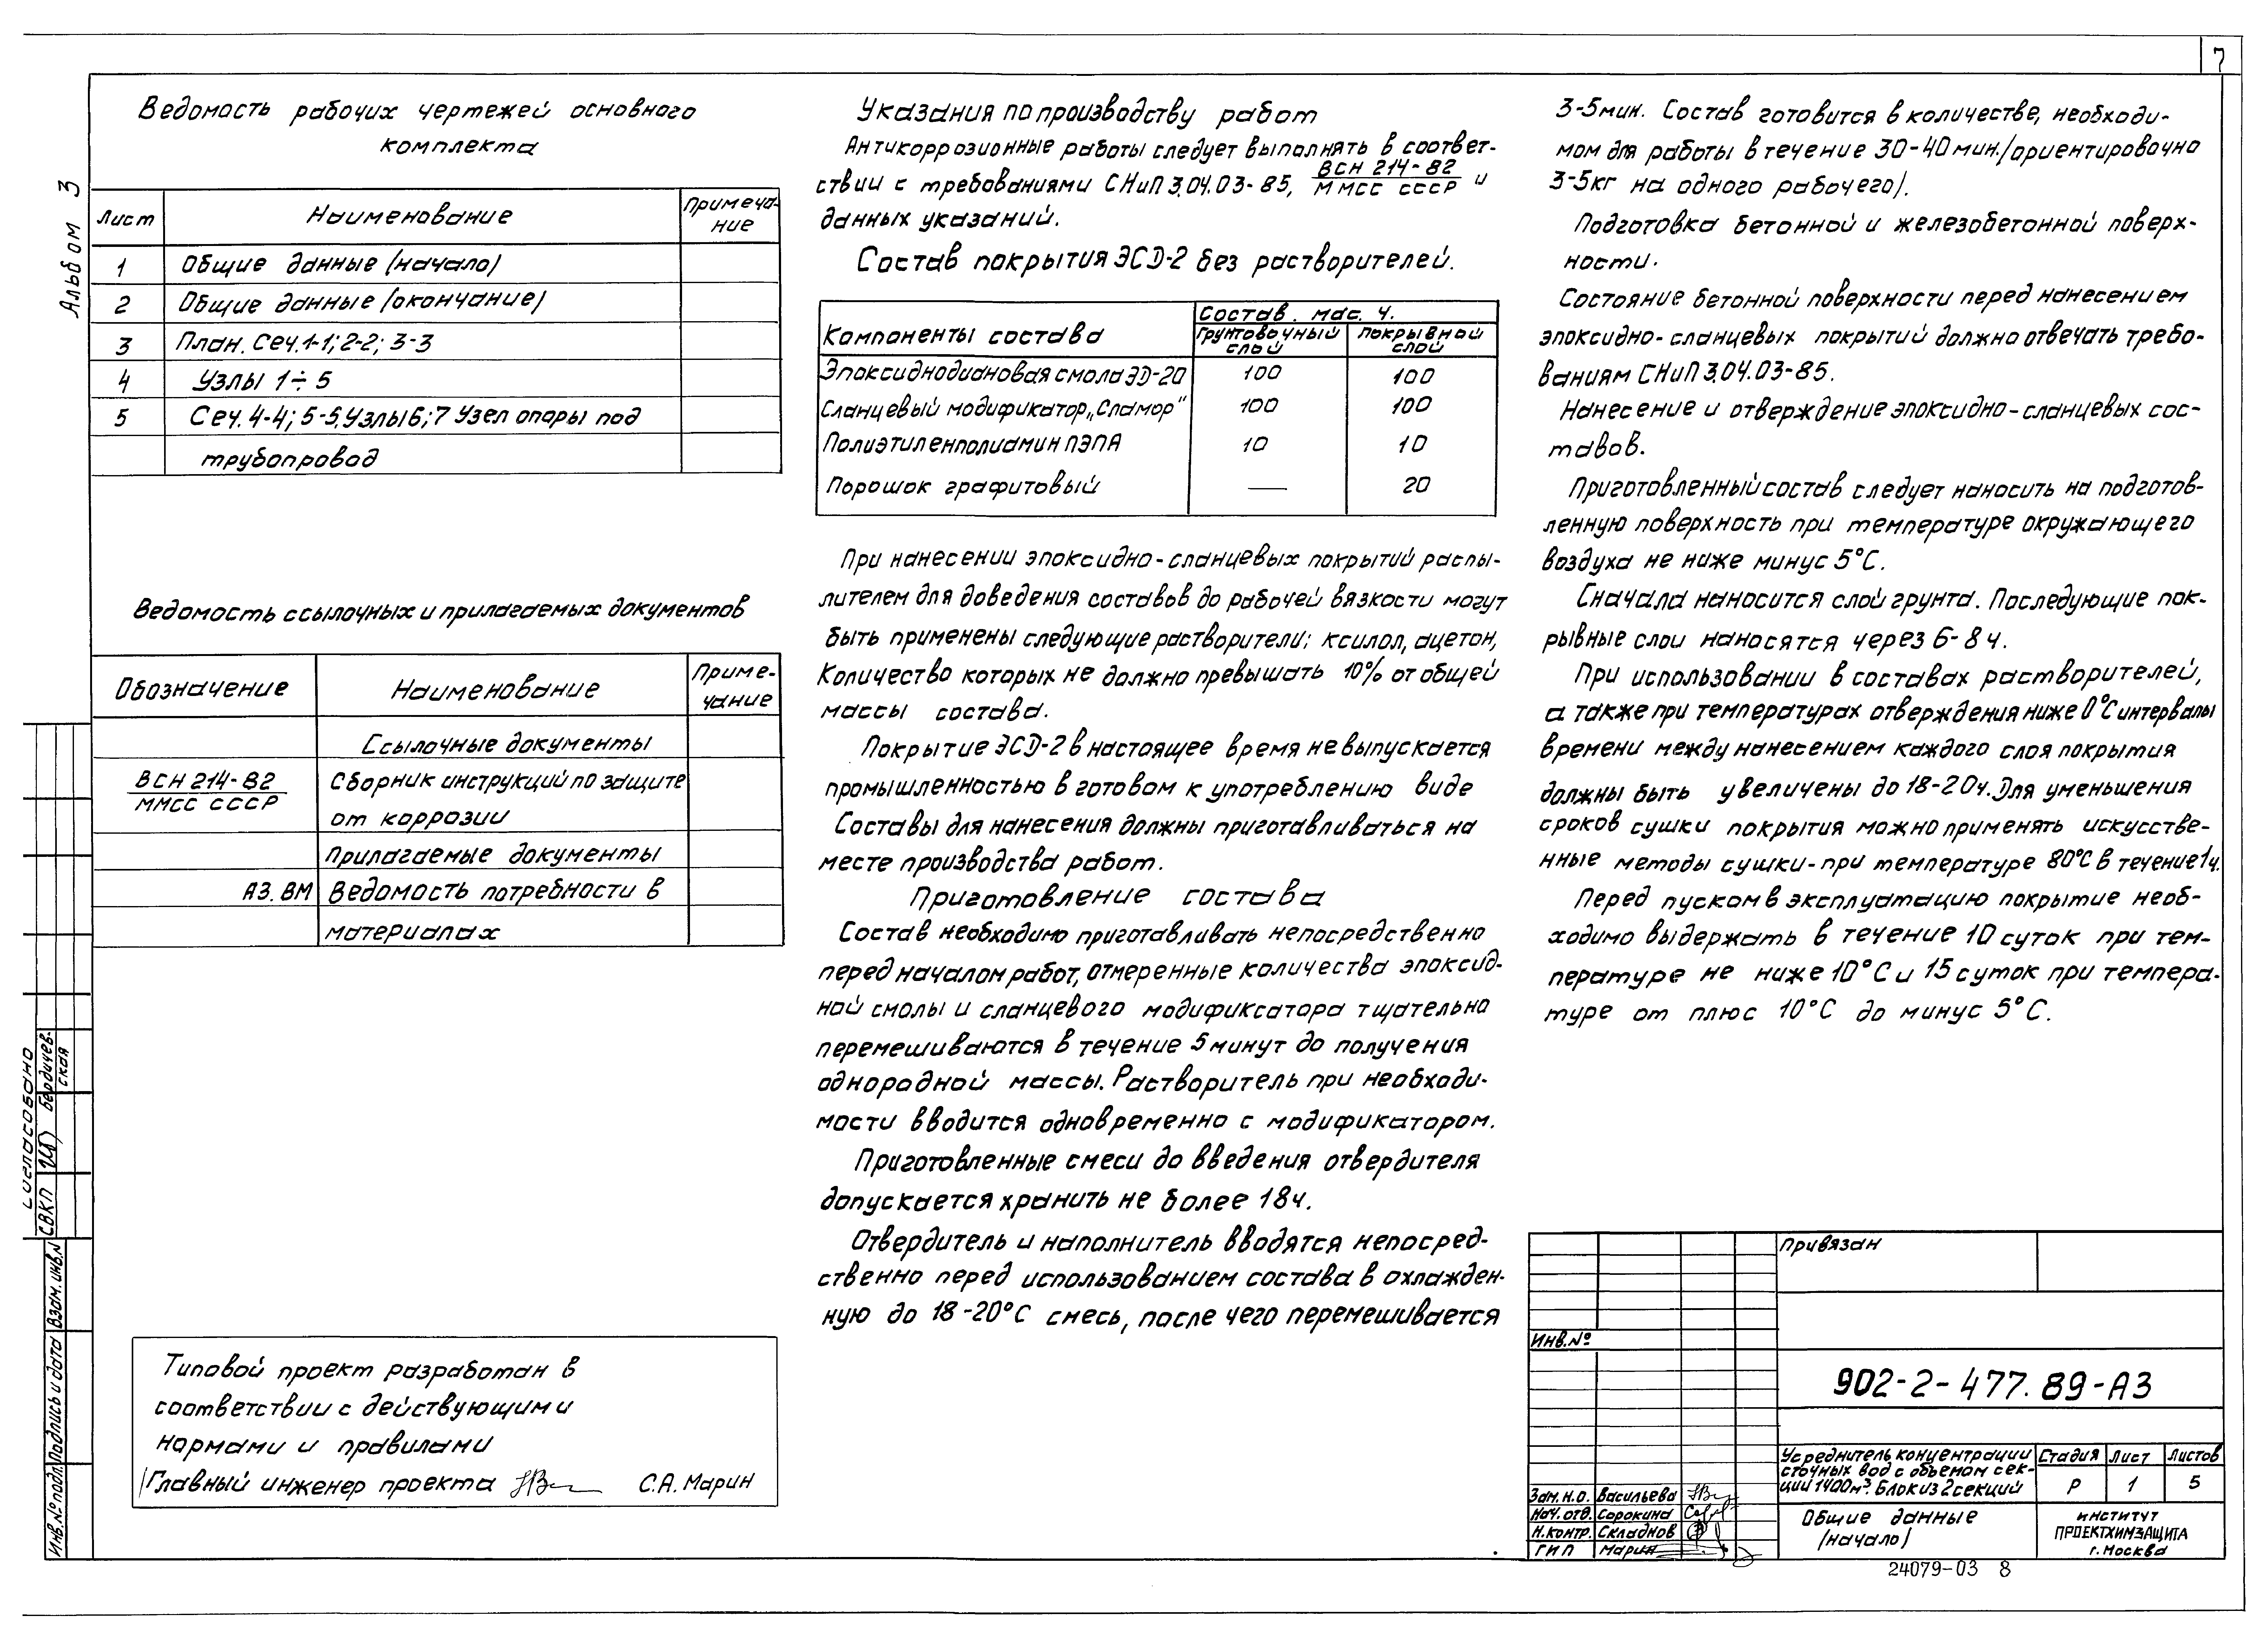 7
Альбом 3
Ведомость рабочих чертежей основного
комплекта
Лист Наименование Примеча-
ние
1 Общие данные /начало/
2 Общие данные /окончание/
3 План. Сеч. 1-1; 2-2; 3-3
4 Узлы 1÷5
5 Сеч. 4-4; 5-5. Узлы 6; 7 Узел опоры под
трубопровод
Ведомость ссылочных и прилагаемых документов
Обозначение Наименование Приме-
чание
Ссылочные документы
ВСН 214-82 Сборник инструкций по защите
ММСС СССР от коррозии
Прилагаемые документы
АЗ. ВМ Ведомость потребности в
материалах
Типовой проект разработан в
соответствии с действующими
нормами и правилами
Главный инженер проекта С.А. Марин
Указания по производству работ
Антикоррозионные работы следует выполнять в соответ-
ствии с требованиями СНиП 3.04.03-85, ВСН 214-82 / ММСС СССР и
данных указаний.
Состав покрытия ЭСД-2 без растворителей.
Компоненты состава Состав. мас. ч.
Грунтовочный слой Покрывной слой
Эпоксиднодиановая смола ЭД-20 100 100
Сланцевый модификатор „Сламор" 100 100
Полиэтиленполиамин ПЭПА 10 10
Порошок графитовый — 20
При нанесении эпоксидно-сланцевых покрытий распы-
лителем для доведения составов до рабочей вязкости могут
быть применены следующие растворители; ксилол, ацетон,
Количество которых не должно превышать 10% от общей
массы состава.
Покрытие ЭСД-2 в настоящее время не выпускается
промышленностью в готовом к употреблению виде
Составы для нанесения должны приготавливаться на
месте производства работ.
Приготовление состава
Состав необходимо приготавливать непосредственно
перед началом работ, отмеренные количества эпоксид-
ной смолы и сланцевого модификсатора тщательно
перемешиваются в течение 5 минут до получения
однородной массы. Растворитель при необходи-
мости вводится одновременно с модификатором.
Приготовленные смеси до введения отвердителя
допускается хранить не более 18ч.
Отвердитель и наполнитель вводятся непосред-
ственно перед использованием состава в охлажден-
ную до 18-20°С смесь, после чего перемешивается
3-5мин. Состав готовится в количестве, необходи-
мом для работы в течение 30-40 мин./ориентировочно
3-5кг на одного рабочего/.
Подготовка бетонной и железобетонной поверх-
ности.
Состояние бетонной поверхности перед нанесением
эпоксидно-сланцевых покрытий должно отвечать требо-
ваниям СНиП 3.04.03-85.
Нанесение и отверждение эпоксидно-сланцевых сос-
тавов.
Приготовленный состав следует наносить на подготов-
ленную поверхность при температуре окружающего
воздуха не ниже минус 5°С.
Сначала наносится слой грунта. Последующие пок-
рывные слои наносятся через 6-8ч.
При использовании в составах растворителей,
а также при температурах отверждения ниже 0°С интервалы
времени между нанесением каждого слоя покрытия
должны быть увеличены до 18-20ч. Для уменьшения
сроков сушки покрытия можно применять искусстве-
нные методы сушки-при температуре 80°С в течение 1ч.
Перед пуском в эксплуатацию покрытие необ-
ходимо выдержать в течение 10 суток при тем-
пературе не ниже 10°С и 15 суток при темпера-
туре от плюс 10°С до минус 5°С.
Согласовано
СВКП Бердичев-
ская
Инв.№ подл. Подпись и дата Взам. инв.N
Привязан
Инв.№
902-2-477.89-АЗ
Усреднитель концентрации
сточных вод с объемом сек-
ции 1400м³. Блок из 2 секций
Стадия Лист Листов
Р 1 5
Зам. н.о. Васильева
Нач. отв. Сорокина
Н. контр. Складнов
ГИП Марин
Общие данные
/начало/
ИНСТИТУТ
ПРОЕКТХИМЗАЩИТА
г. Москва
24079-03 8